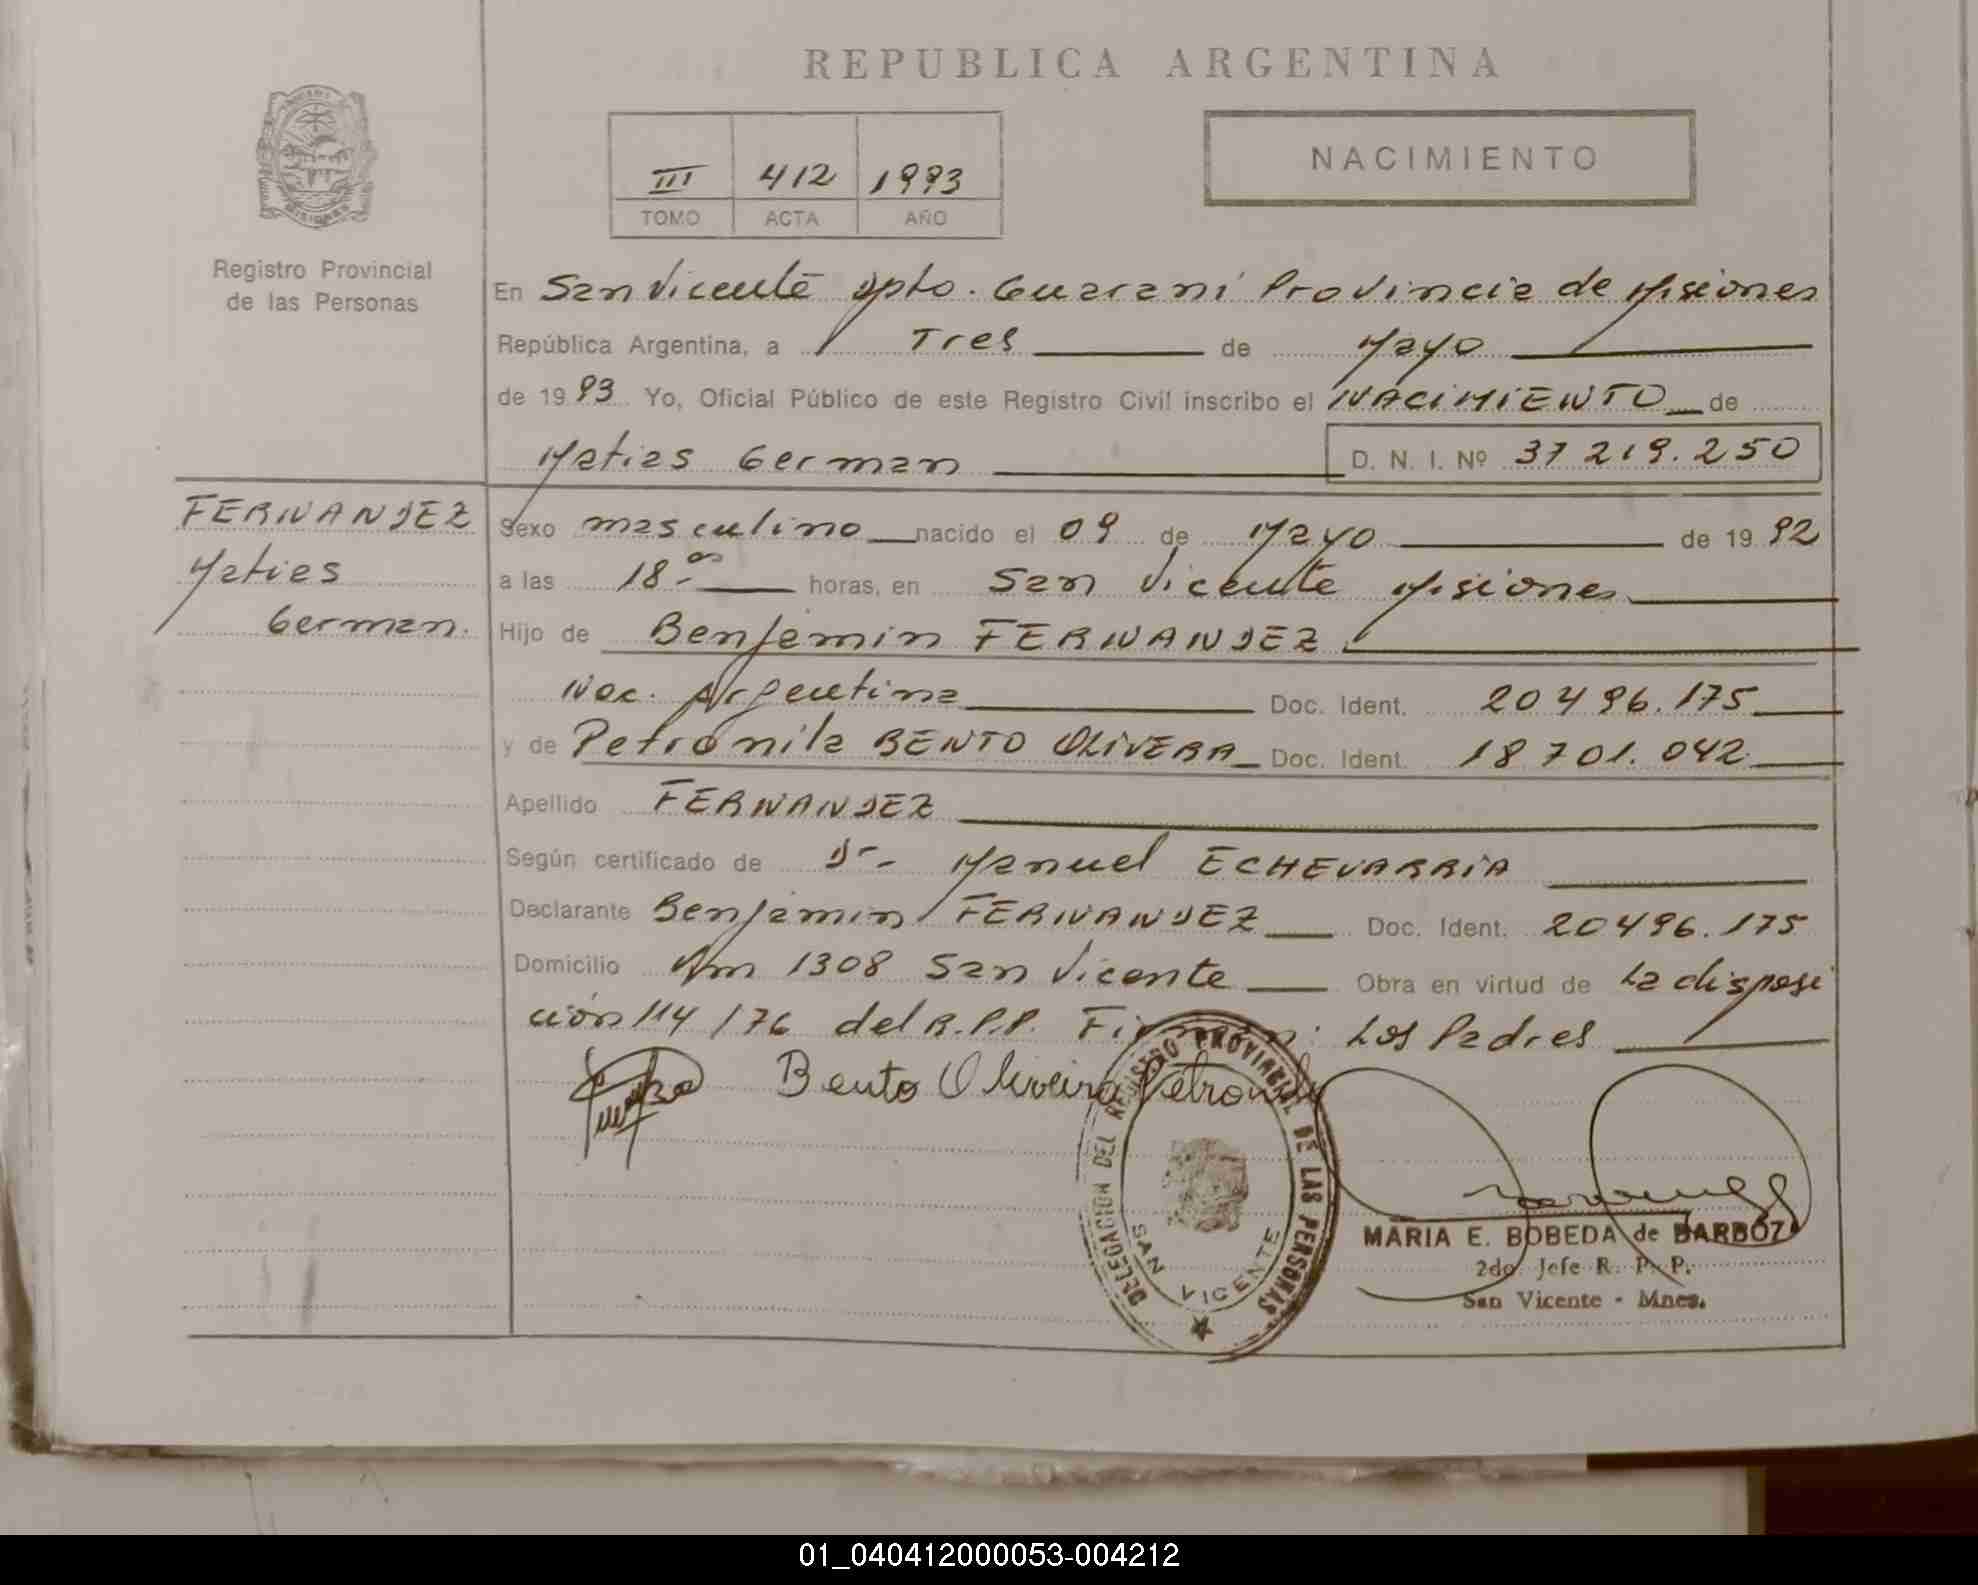 REPUBLICA ARGENTINA
III 412 1993
TOMO ACTA AÑO
NACIMIENTO
Registro Provincial
de las Personas
En San Vicente Dpto. Guarani Provincia de Misiones
República Argentina, a Tres de Mayo
de 1993 Yo, Oficial Público de este Registro Civil inscribo el NACIMIENTO de
Matias German D. N. I. Nº 37 219.250
FERNANDEZ
Matias
German.
Sexo masculino nacido el 09 de Mayo de 1992
a las 18.00 horas, en San Vicente Misiones
Hijo de Benjamin FERNANDEZ
Nac. Argentina Doc. Ident. 20 496.175
y de Petronila BENTO OLIVERA Doc. Ident. 18 701.042
Apellido FERNANDEZ
Según certificado de Dr. Manuel ECHEVARRIA
Declarante Benjamin FERNANDEZ Doc. Ident. 20496.175
Domicilio Km 1308 San Vicente Obra en virtud de La disposi
ción 114/76 del R.P.P. Firman: Los Padres
Bento Oliveira Petronila
DELEGACION DEL REGISTRO PROVINCIAL DE LAS PERSONAS
SAN VICENTE
MARIA E. BOBEDA de BARBOZA
2do. Jefe R. P. P.
San Vicente - Mnes.
01_040412000053-004212